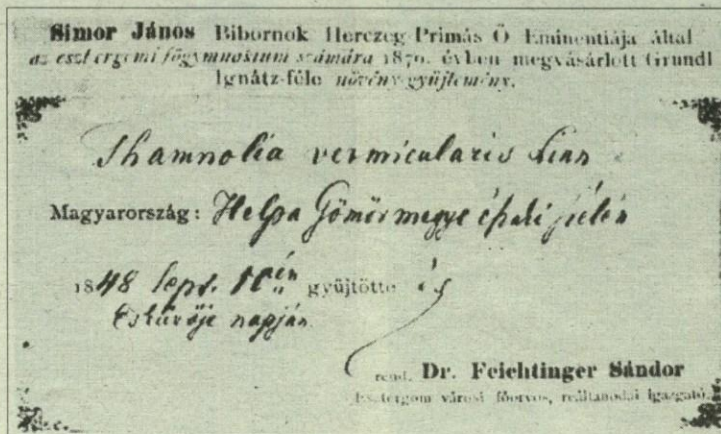 Simor János Bibornok Herczeg-Primás Ő Eminentiája által
az esztergomi főgymnasium számára 1870. évben megvásárlott Grundl
Ignátz-féle növény-gyűjtemény.
Thamnolia vermicularis Linn
Magyarország: Helpa Gömörmegye északi
1848 Sept. 10én gyűjtötte és
Esküvője napján
rend. Dr. Feichtinger Sándor
Esztergom városi főorvos, reáltanodai igazgató.